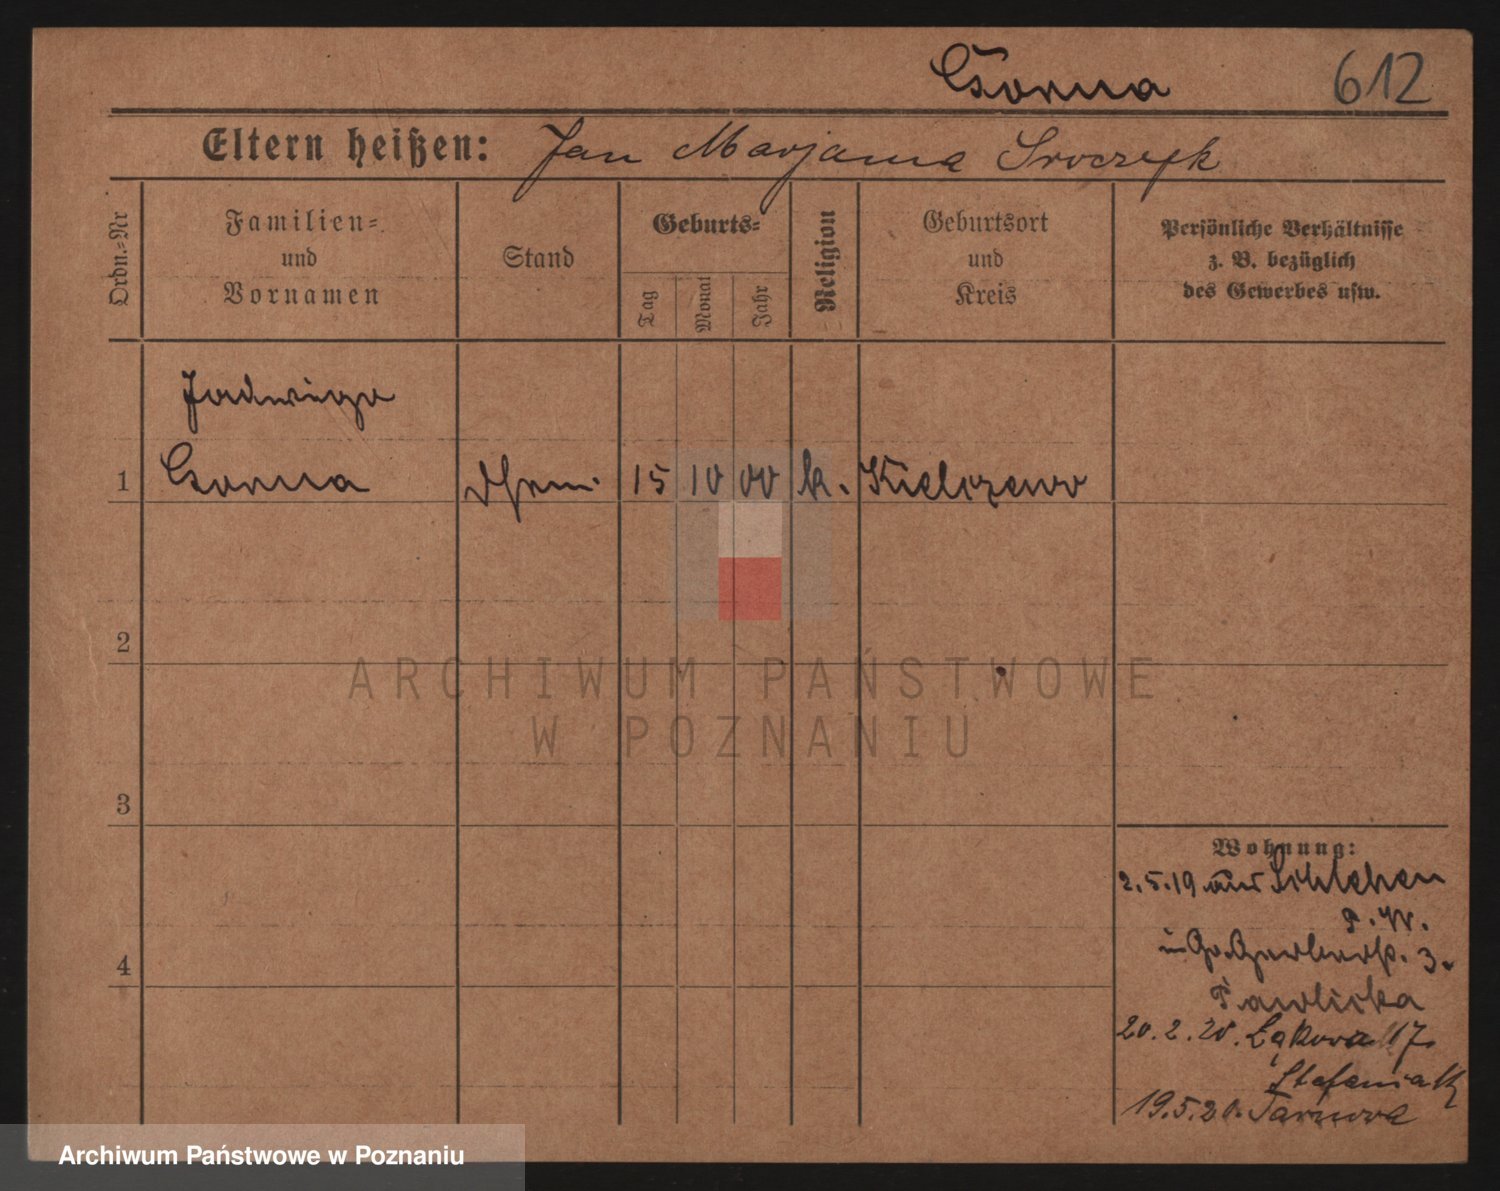 Czorna 612
Eltern heißen: Jan Marjanna Sroczyk
Ordn.=Nr
Familien=
und
Vornamen
Stand
Geburts=
Tag
Monat
Jahr
Religion
Geburtsort
und
Kreis
Persönliche Verhältnisse
z. B. bezüglich
des Gewerbes usw.
Jadwiga
1 Czorna 15 10 00 k. Kielczewo
2
ARCHIWUM PAŃSTWOWE
W POZNANIU
3
Wohnung:
2.5.19 aus Schlehen
P. W.
in Gr. Gerberstr. 3.
4
Pawlicka
20.2.20. Łąkowa 17.
Stefaniak
19.5.20. Tarnowa
Archiwum Państwowe w Poznaniu